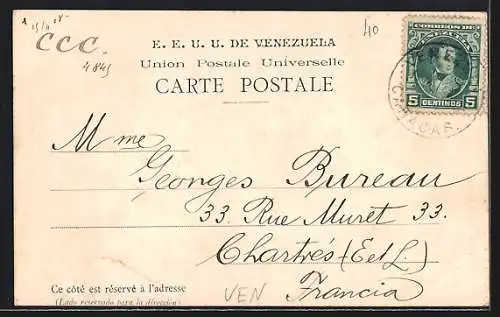 CCC.
4845
40
E. E. U. U. DE VENEZUELA
Union Postale Universelle
CARTE POSTALE
CORREOS DE
VENEZUELA
5 CENTIMOS 5
CARACAS
Mme
Georges Bureau
33. Rue Muret 33.
Chartrés (E et L.)
Francia
Ce côté est réservé à l'adresse
(Lado reservado para la dirección)
VEN